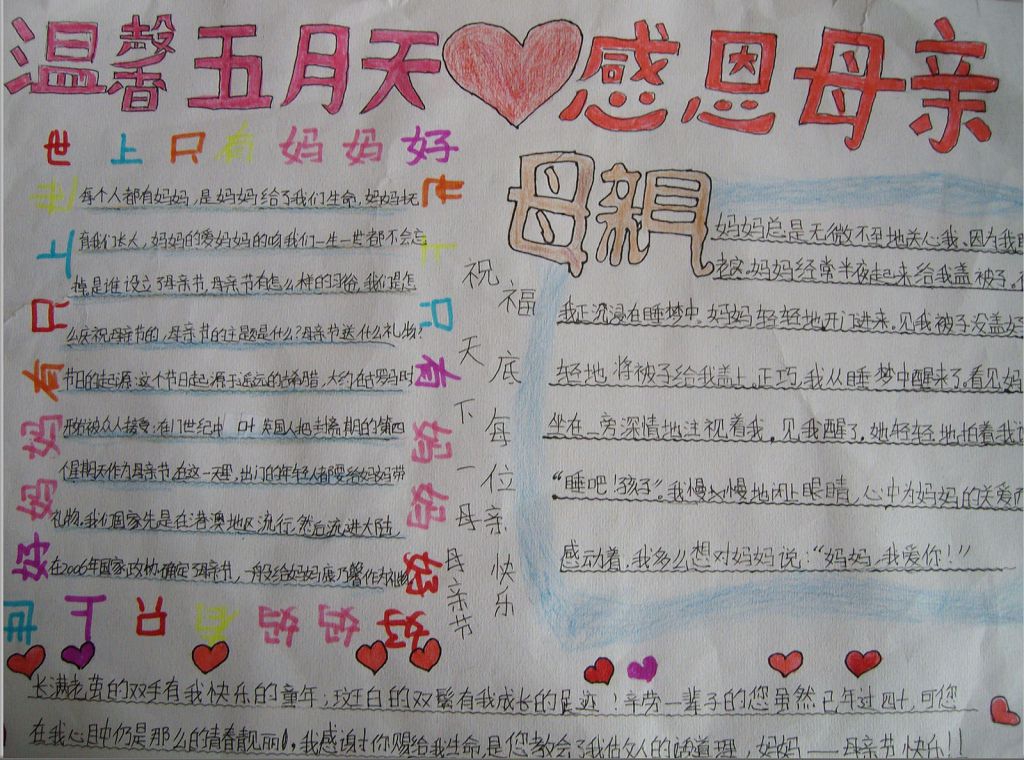 温馨五月天 感恩母亲
世上只有妈妈好
世上只有妈妈好
每个人都有妈妈,是妈妈给了我们生命,妈妈抚
育我们长大,妈妈的爱妈妈的吻我们一生一世都不会忘
掉是谁设立了母亲节,母亲节有怎么样的习俗,我们是怎
么庆祝母亲节的,母亲节的主题是什么?母亲节送什么礼物?
节日的起源:这个节日起源于遥远的古希腊,大约在古罗马时
形被众人接受;在17世纪中叶英国人把封斋期的第四
个星期天作为母亲节,在这一天里,出门的年轻人都要给妈妈带
礼物,我们国家先是在港澳地区流行,然后流进大陆
在2006年国家政协确定了母亲节,一般给妈妈康乃馨作为礼物
世上只有妈妈好
世上只有妈妈好
祝福
天底下每一位母亲
母亲节快乐
母亲
妈妈总是无微不至地关心我,因为我
老,妈妈经常半夜起来给我盖被子,
我正沉浸在睡梦中,妈妈轻轻地开门进来,见我被子没盖好
轻地将被子给我盖上,正巧,我从睡梦中醒来了,看见妈
坐在一旁深情地注视着我,见我醒了,她轻轻地拍着我
“睡吧!孩子”,我慢慢地闭上眼睛,心中为妈妈的关爱而
感动着,我多么想对妈妈说:“妈妈,我爱你!”
长满老茧的双手有我快乐的童年;斑白的双鬓有我成长的足迹!辛劳一辈子的您虽然已年过四十,可您
在我心目中仍是那么的青春靓丽,我感谢你赐给我生命,是您教会了我做人的道理,妈妈——母亲节快乐!!